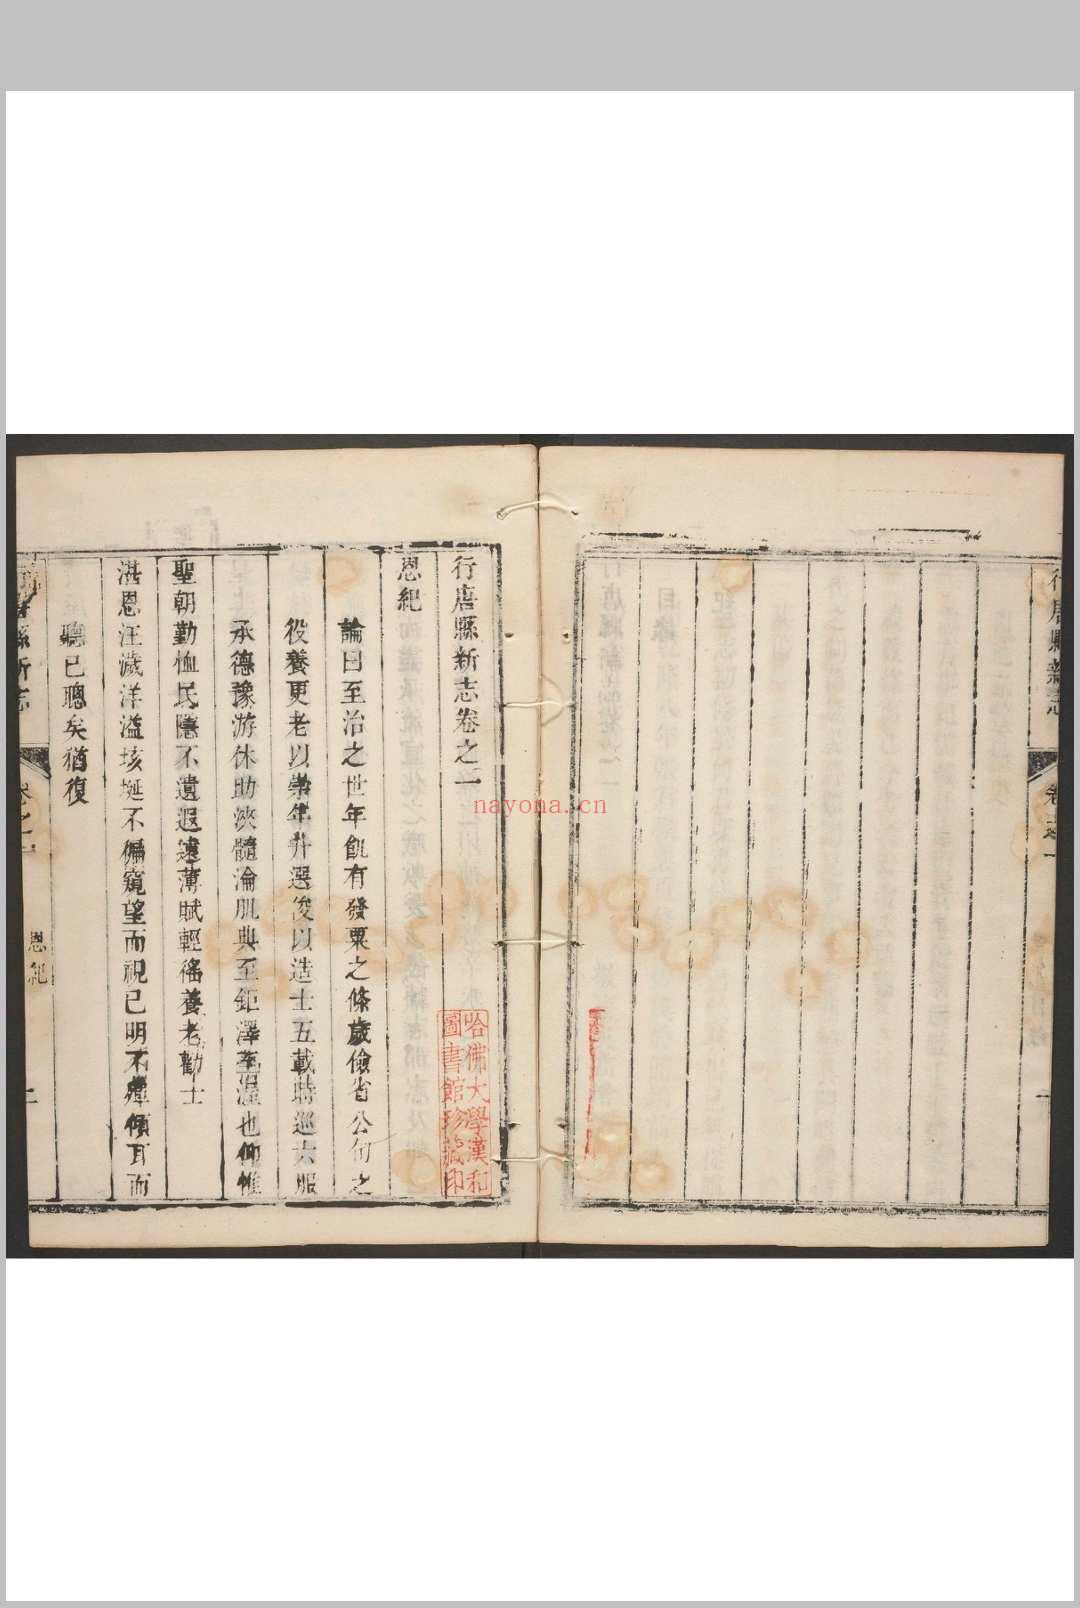 行唐縣新志
卷之一
行唐縣新志卷之二
恩紀
論曰至治之世年飢有發粟之條歲儉省公旬之
役養更老以崇年升選俊以造士五載時巡六服
承德豫游休助浹髓淪肌典至鉅澤至渥也仰惟
聖朝勤恤民隱不遺遐邇薄賦輕徭養老勸士
湛恩汪濊洋溢垓埏不徧窺望而視已明不殫傾耳而
聽已聰矣猶復
縣新志
恩紀
哈佛大學漢和
圖書館珍藏印
nayona.cn